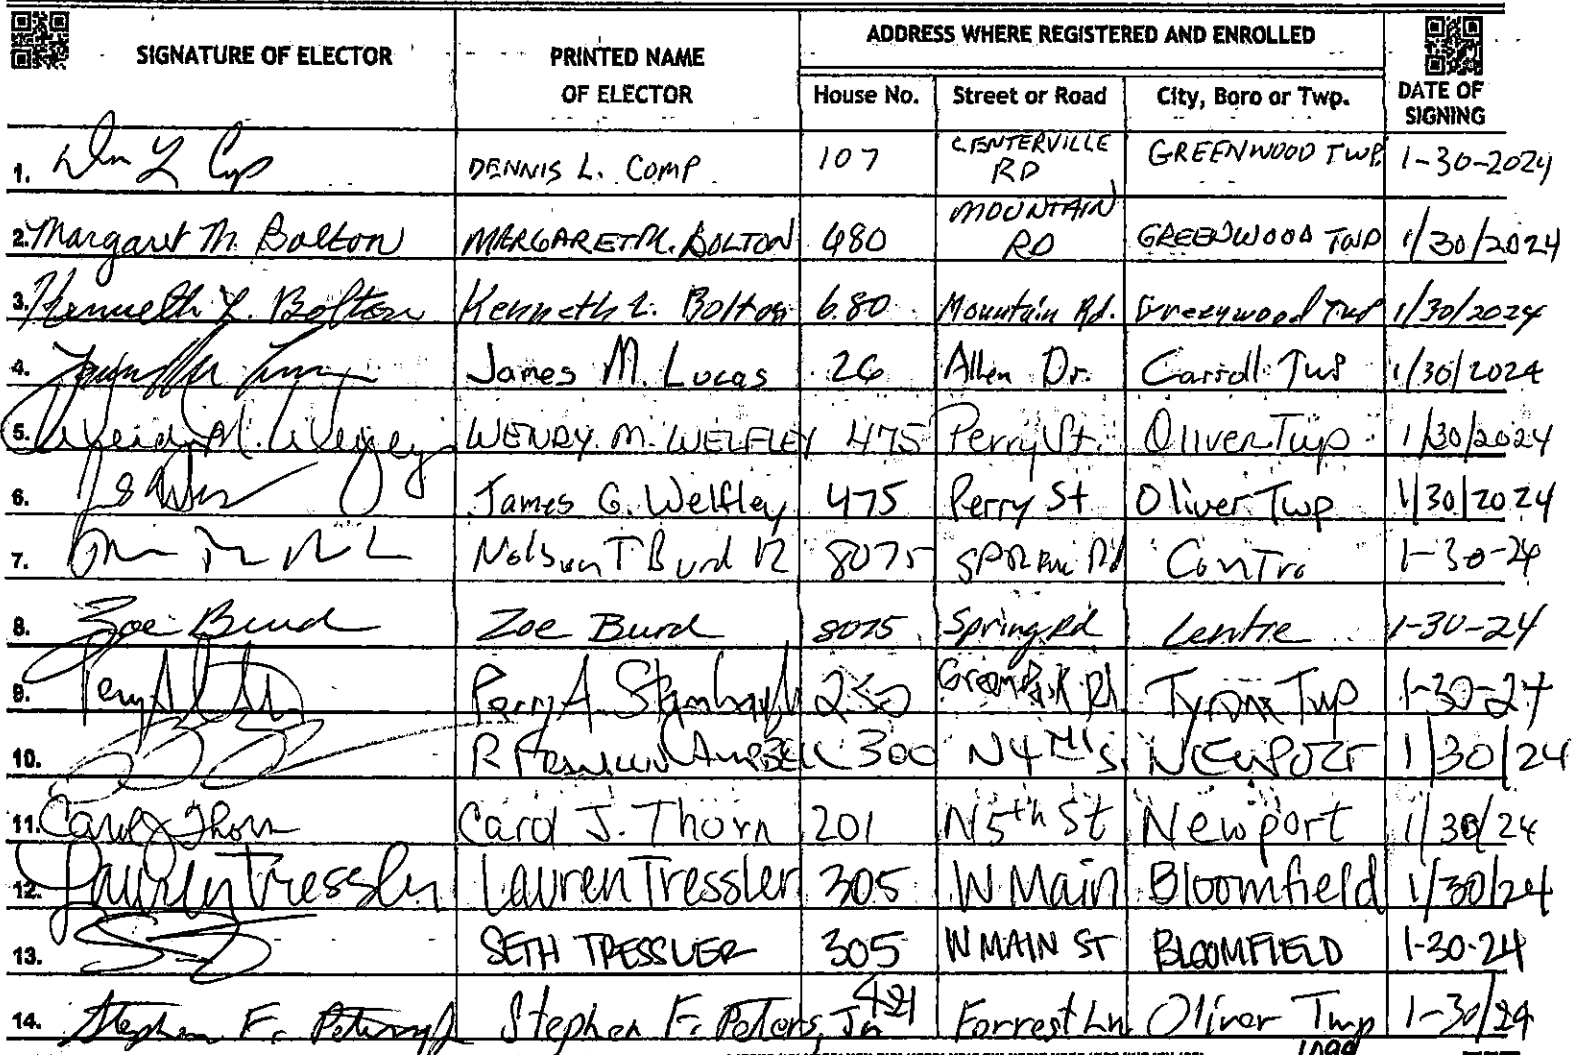 ADDRESS WHERE REGISTERED AND ENROLLED
SIGNATURE OF ELECTOR PRINTED NAME OF ELECTOR House No. Street or Road City, Boro or Twp. DATE OF SIGNING
1. DENNIS L. COMP 107 CENTERVILLE RD GREENWOOD TWP. 1-30-2024
2. Margaret M. Bolton MARGARET M. BOLTON 480 MOUNTAIN RD GREENWOOD TWP 1/30/2024
3. Kenneth L. Bolton Kenneth L. Bolton 680 Mountain Rd. Greenwood Twp 1/30/2024
4. James M. Lucas 26 Allen Dr. Carroll Twp 1/30/2024
5. WENDY M. WELFLEY 475 Perry St. Oliver Twp 1/30/2024
6. James G. Welfley 475 Perry St Oliver Twp 1/30/2024
7. Burd 8075 Rd 1-30-24
8. Zoe Burd Zoe Burd 8075 Spring Rd Centre 1-30-24
9. Perry A. Stambaugh 230 Green Park Rd. Tyrone Twp 1-30-24
10. R Franklin Campbell 300 N 4TH S. NEWPORT 1/30/24
11. Carol J Thorn Carol J. Thorn 201 N 5th St Newport 1/30/24
12. Lauren Tressler Lauren Tressler 305 W Main Bloomfield 1/30/24
13. SETH TRESSLER 305 W MAIN ST BLOOMFIELD 1-30-24
14. Stephen F. Peters Jr Stephen F. Peters, Jr 421 Forrest Ln Oliver Twp 1-30/24